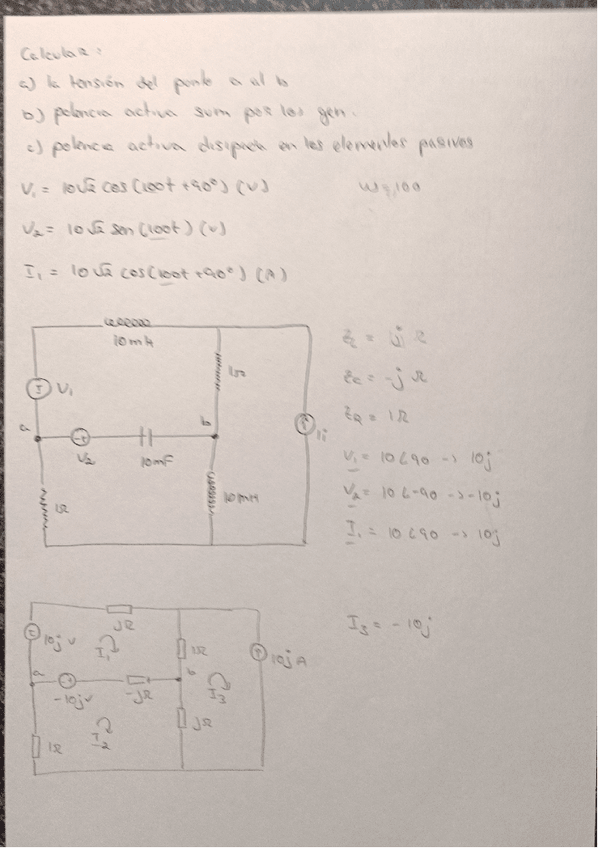 Calcular:
a) la tensión del punto a al b
b) potencia activa sum por los gen.
c) potencia activa disipada en los elementos pasivos
V₁ = 10√2 cos(100t +90°) (V) ω=100
V₂ = 10√2 sen(100t) (V)
I₁ = 10√2 cos(100t +90°) (A)
10mH
1Ω
V₁
a
V₂
10mF
b
1Ω
10mH
I₁
Z_L = j Ω
Z_C = -j Ω
Z_R = 1Ω
V₁ = 10∠90 -> 10j
V₂ = 10∠-90 -> -10j
I₁ = 10∠90 -> 10j
jΩ
10j V
I₁
1Ω
10j A
a
-10jV
-jΩ
b
I₃
1Ω
I₂
jΩ
I₃ = -10j